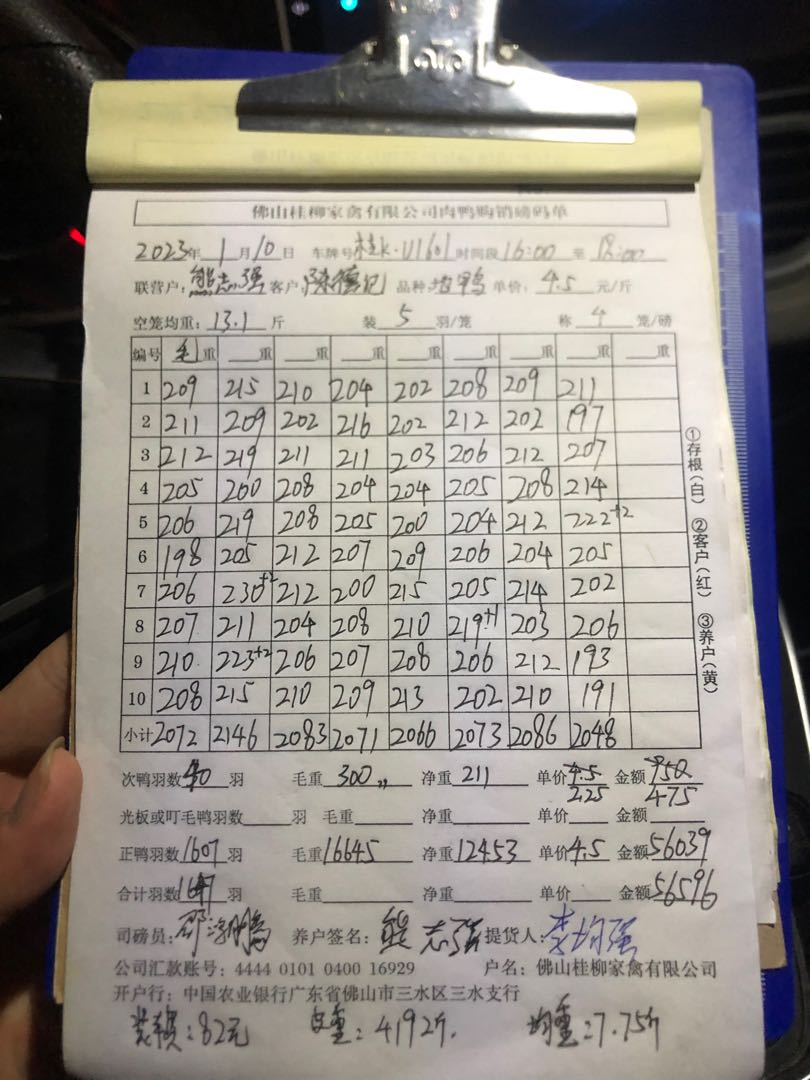 佛山桂柳家禽有限公司肉鸭购销磅码单
2023年1月10日 车牌号桂K·U1601时间段16:00至18:00
联营户:熊志强 客户:陈德记 品种 单价:4.5元/斤
空笼均重:13.1斤 装5羽/笼 称4笼/磅
编号 毛重 重 重 重 重 重 重 重 重
1 209 215 210 204 202 208 209 211
2 211 209 202 216 202 212 202 197
3 212 219 211 211 203 206 212 207
4 205 200 208 204 204 205 208 214
5 206 219 208 205 200 204 212 222+2
6 198 205 212 207 209 206 204 205
7 206 230+2 212 200 215 205 214 202
8 207 211 204 208 210 219+1 203 206
9 210 223+2 206 207 208 206 212 193
10 208 215 210 209 213 202 210 191
小计 2072 2146 2083 2071 2066 2073 2086 2048
次鸭羽数40羽 毛重300 净重211 单价4.5 金额950
2.25 475
光板或叮毛鸭羽数 羽 毛重 净重 单价 金额
正鸭羽数1607羽 毛重16645 净重12453 单价4.5 金额56039
合计羽数1647羽 毛重 净重 单价 金额56596
司磅员: 养户签名:熊志强 提货人:李均强
公司汇款账号:4444 0101 0400 16929 户名:佛山桂柳家禽有限公司
开户行:中国农业银行广东省佛山市三水区三水支行
装费:82元 皮重:4192斤. 均重:7.75斤
①存根(白) ②客户(红) ③养户(黄)